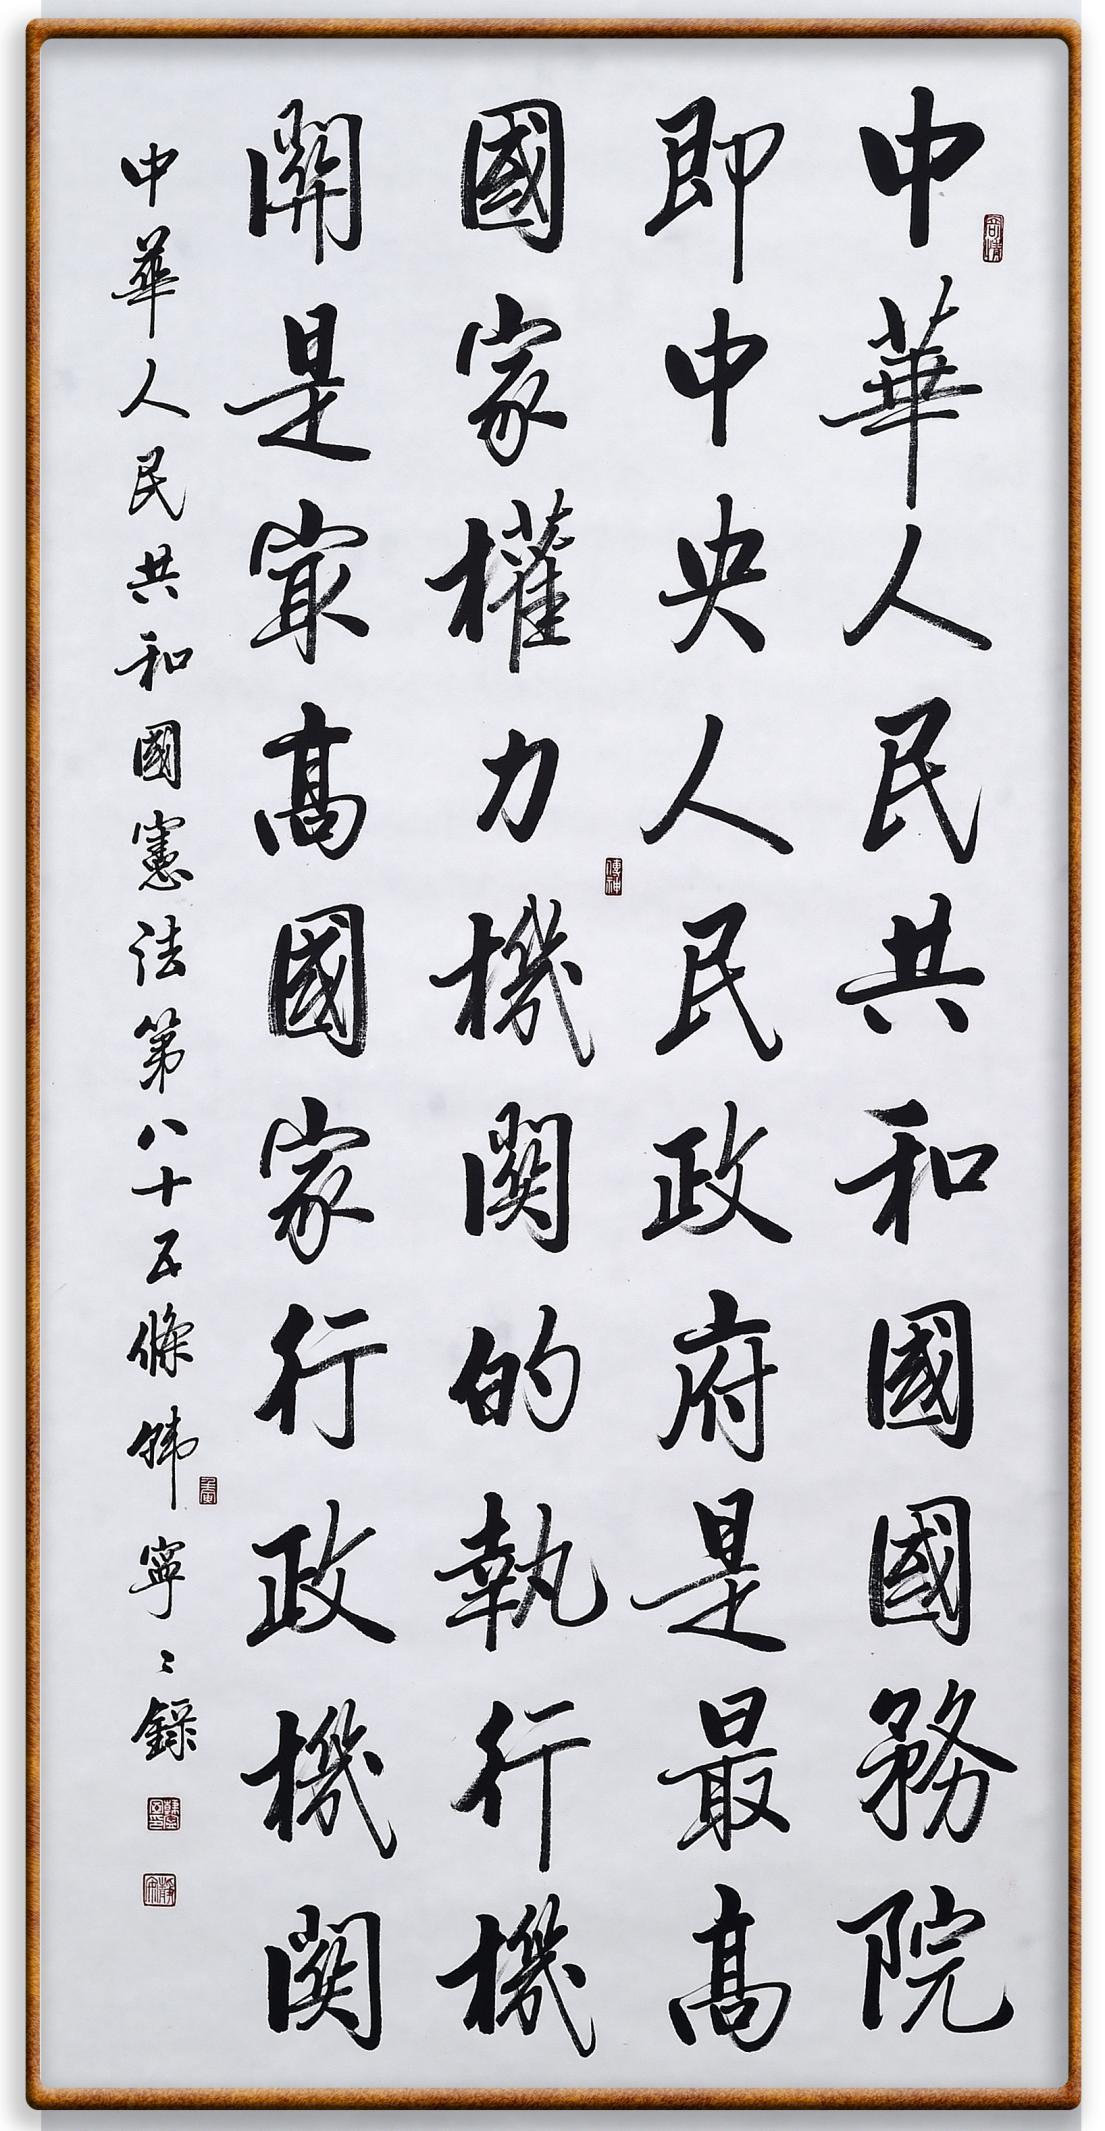 中華人民共和國國務院
即中央人民政府是最高
國家權力機關的執行機
關是最高國家行政機關
中華人民共和國憲法第八十五條韓寧〻錄
傳神